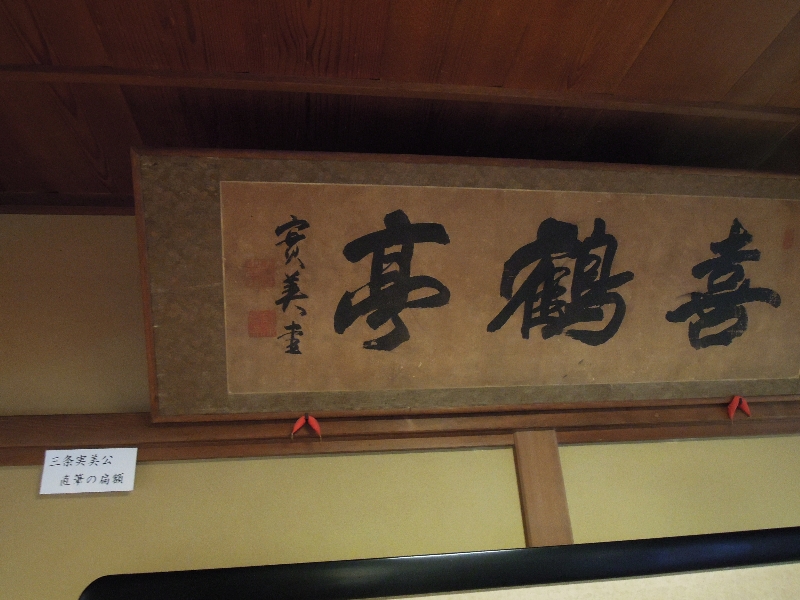 喜鶴亭
實美書
三条実美公
直筆の扁額